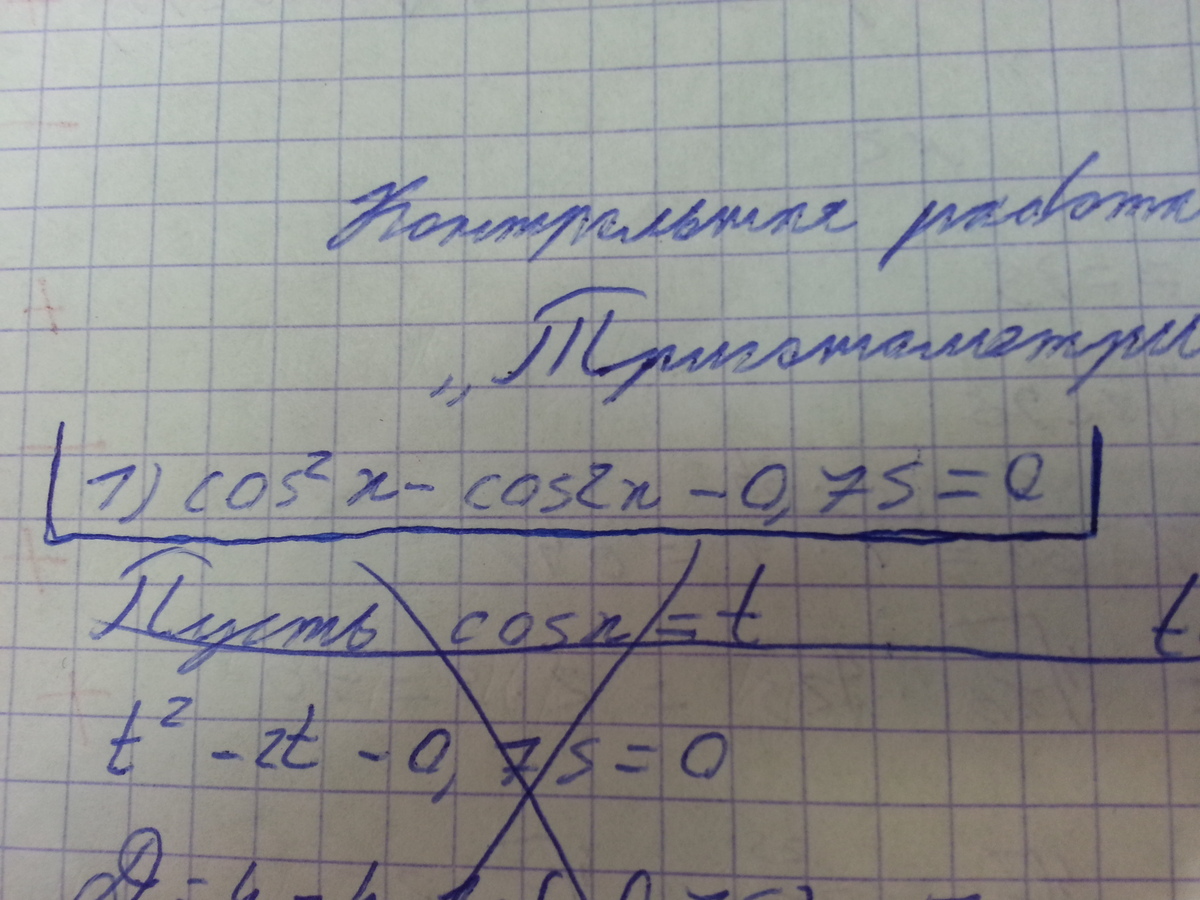 Контрольная работа
„Тригонометри
1) cos² x - cos2x - 0,75 = 0
Пусть cosx = t t
t² - 2t - 0,75 = 0